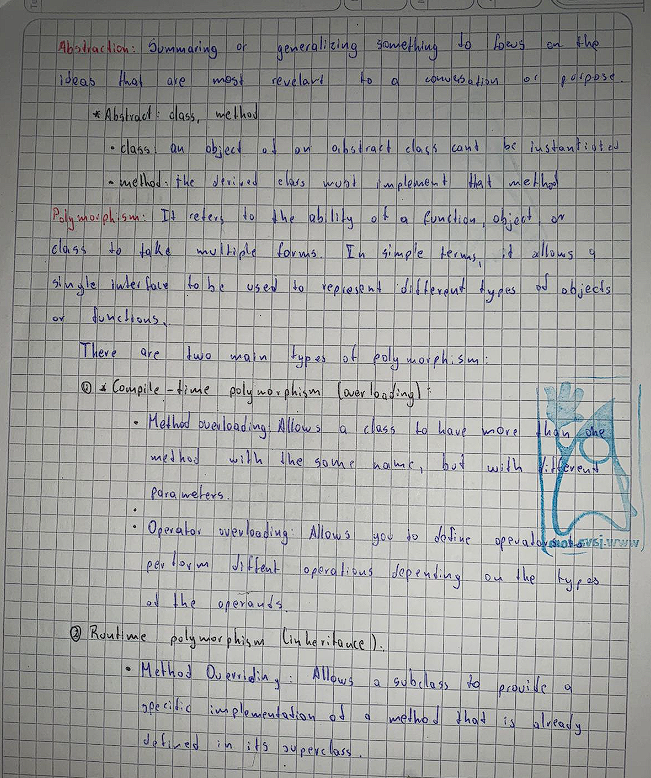 Abstraction: Summaring or generalizing something to focus on the
ideas that are most revelant to a conversation or purpose.
* Abstract: class, method
• class: an object of an abstract class cant be instantiated
• method: the derived class must implement that method
Polymorphism: It refers to the ability of a function, object or
class to take multiple forms. In simple terms, it allows a
single interface to be used to represent different types of objects
or functions.
There are two main types of polymorphism:
① * Compile-time polymorphism (overloading):
• Method overloading: Allows a class to have more than one
method with the same name, but with different
parameters.
•
• Operator overloading: Allows you to define operators
perform diffent operations depending on the types
of the operands.
② Routime polymorphism (inheritance).
• Method Overriding: Allows a subclass to provide a
specific implementation of a method that is already
defined in its superclass.